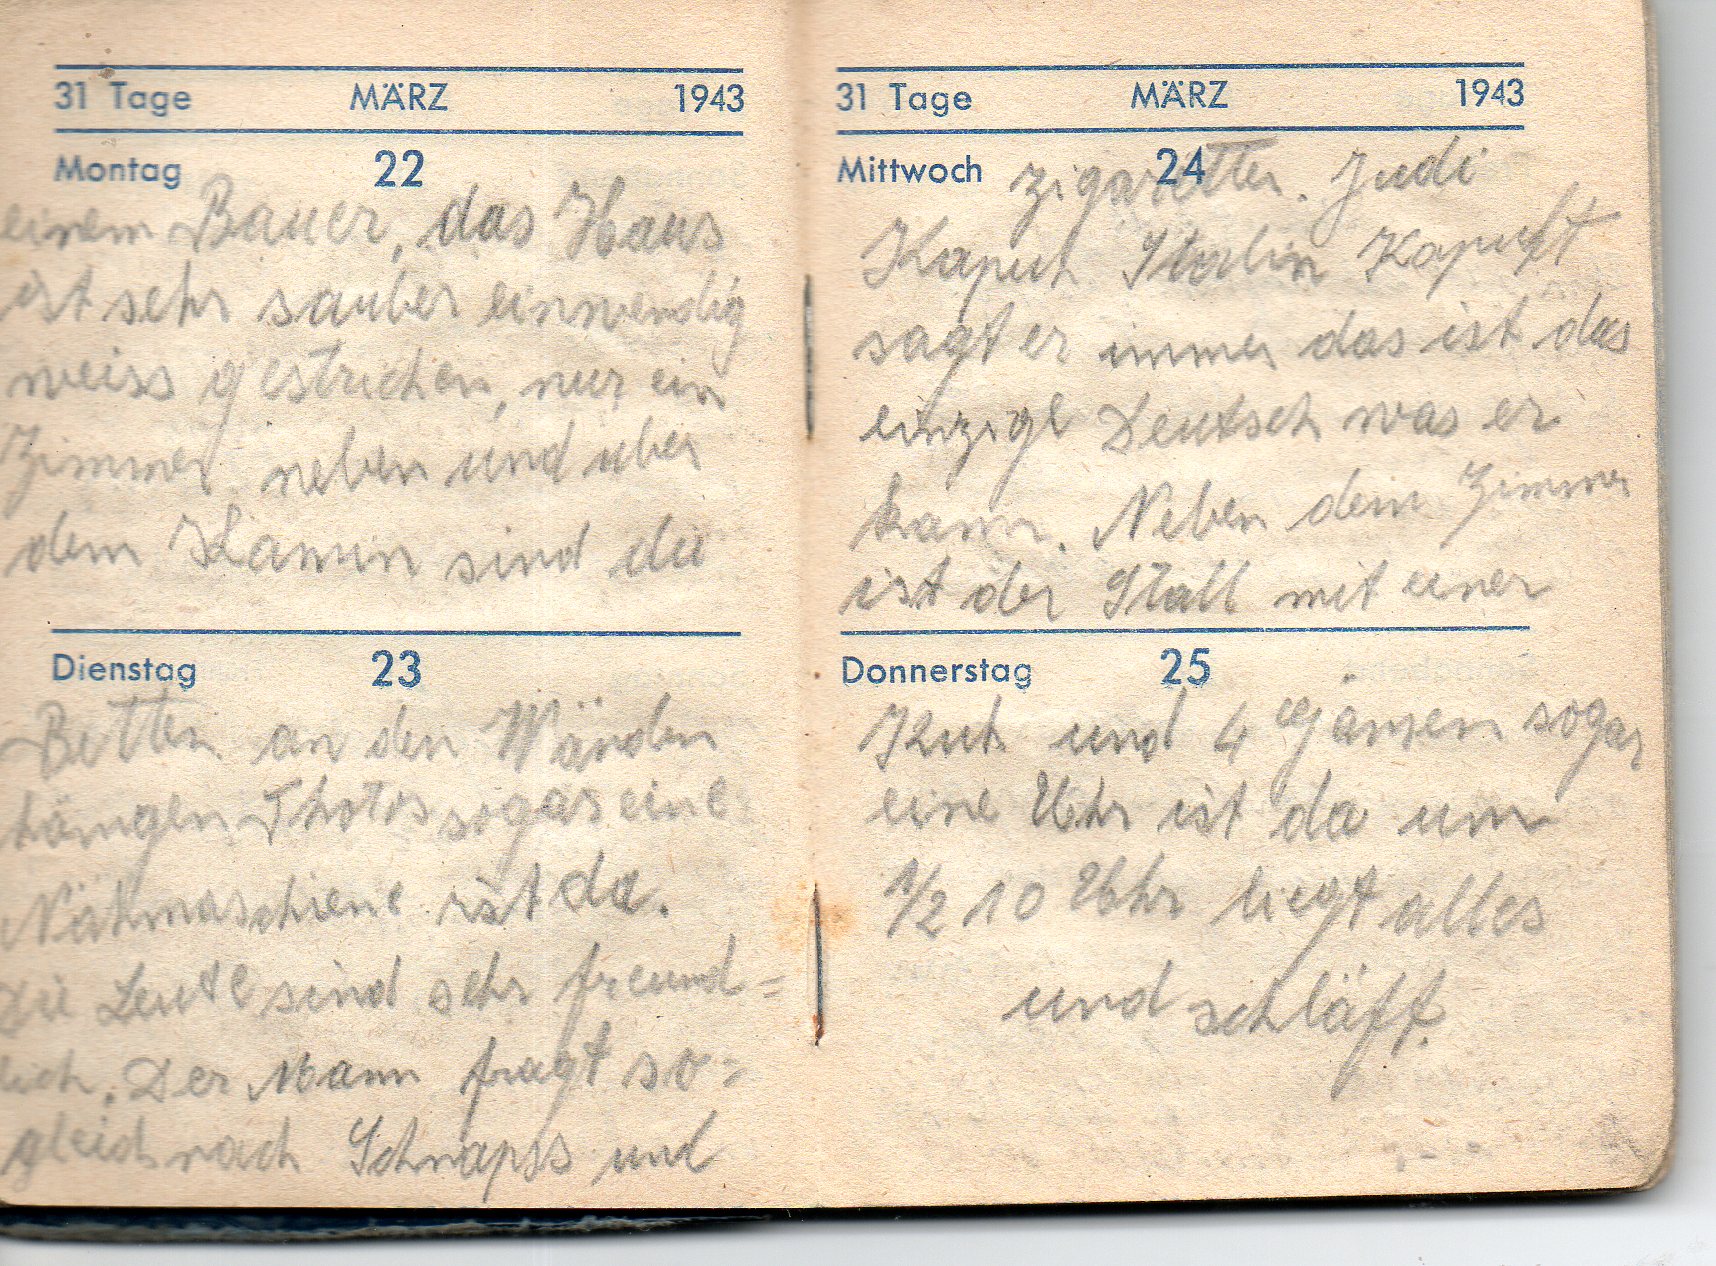 31 Tage MÄRZ 1943
Montag 22
einem Bauer, das Haus
ist sehr sauber einwendig
weiss gestrichen, nur ein
Zimmer neben und uber
dem Kamin sind die
Dienstag 23
Betten an den Wänden
hängen Photos sogar eine
Nähmaschiene ist da.
Die Leute sind sehr freund=
lich. Der Mann fragt so=
gleich nach Schnapss und
31 Tage MÄRZ 1943
Mittwoch 24
Zigaretten. Judi
Kaput Stalin Kaputt
sagt er immer das ist das
einzige Deutsch was er
kann. Neben dem Zimmer
ist der Stall mit einer
Donnerstag 25
Kuh und 4 Gänsen sogar
eine Uhr ist da um
1/2 10 Uhr liegt alles
und schläft.